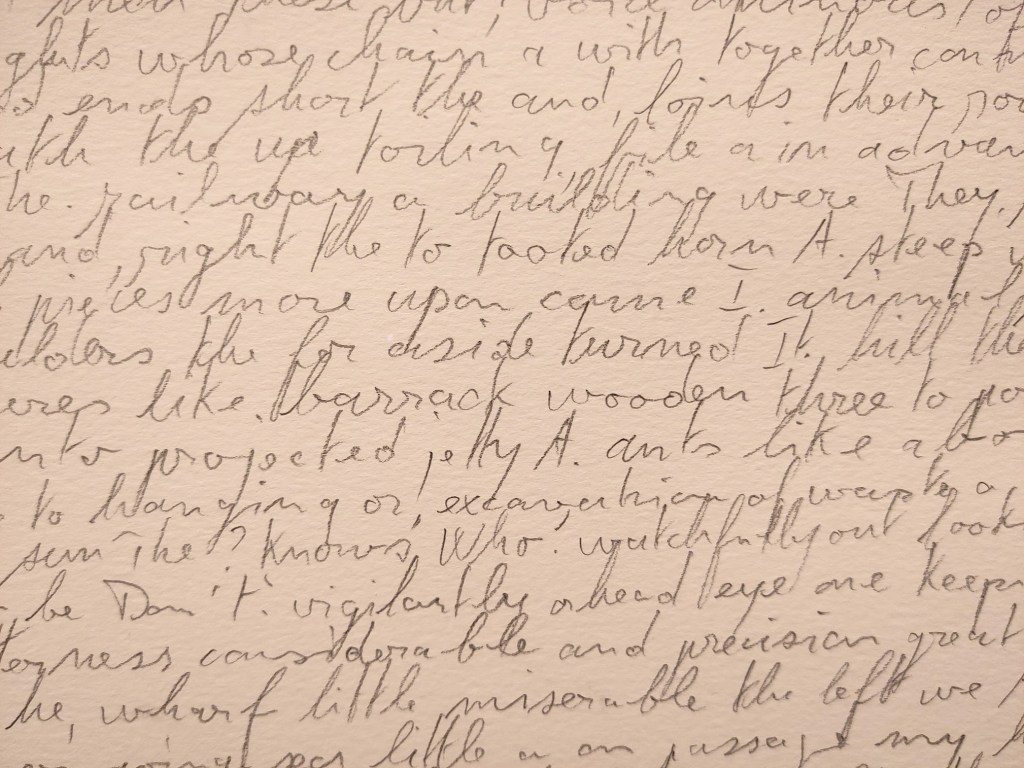 whose chain, a with together
ends short the and, joints their
the up toiling file a in advan
he. railway a building were They,
and, right the to tooted horn A. steep
pieces more upon came I. animal
ulders the for aside turned It. hill the
like. barrack wooden three to
nto projected jetty A. ants like a
to hanging or, excavation of waste a
sun The? Knows, Who. watchfully out look
be Don't. vigilantly ahead eye one keep
considerable and precision great
he, wharf little, miserable the left we
little a on passage my